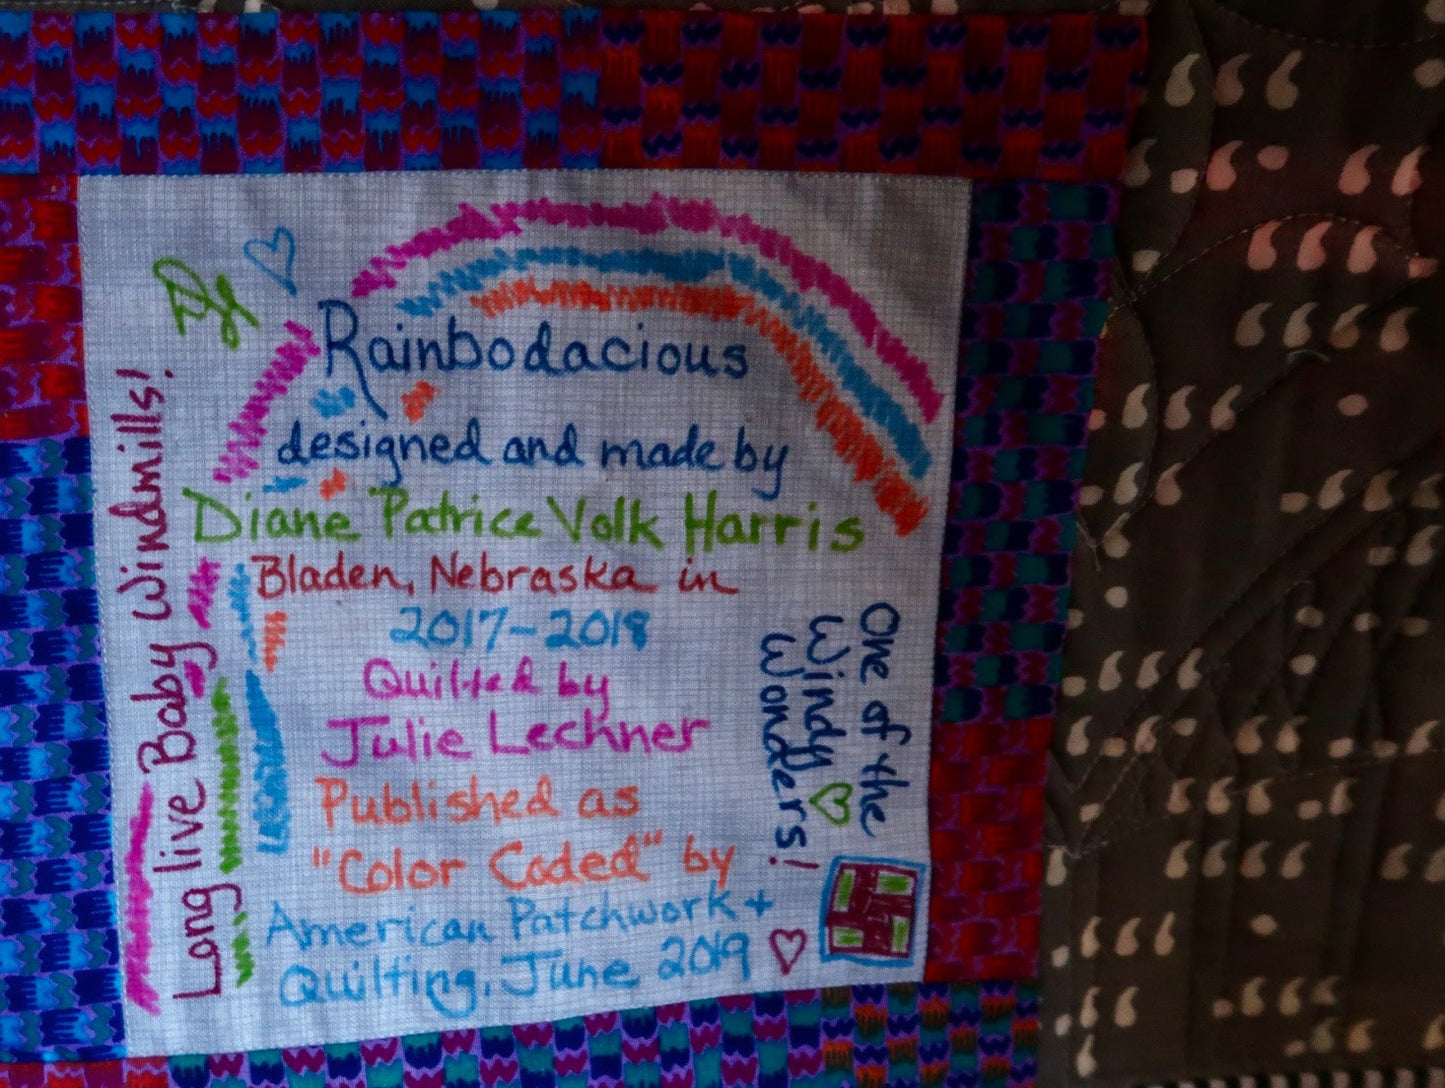 Rainbodacious
designed and made by
Diane Patrice Volk Harris
Bladen, Nebraska in
2017-2018
Quilted by
Julie Lechner
Published as
"Color Coded" by
American Patchwork +
Quilting, June 2019
Long live Baby Windmills!
One of the
Windy
Wonders!